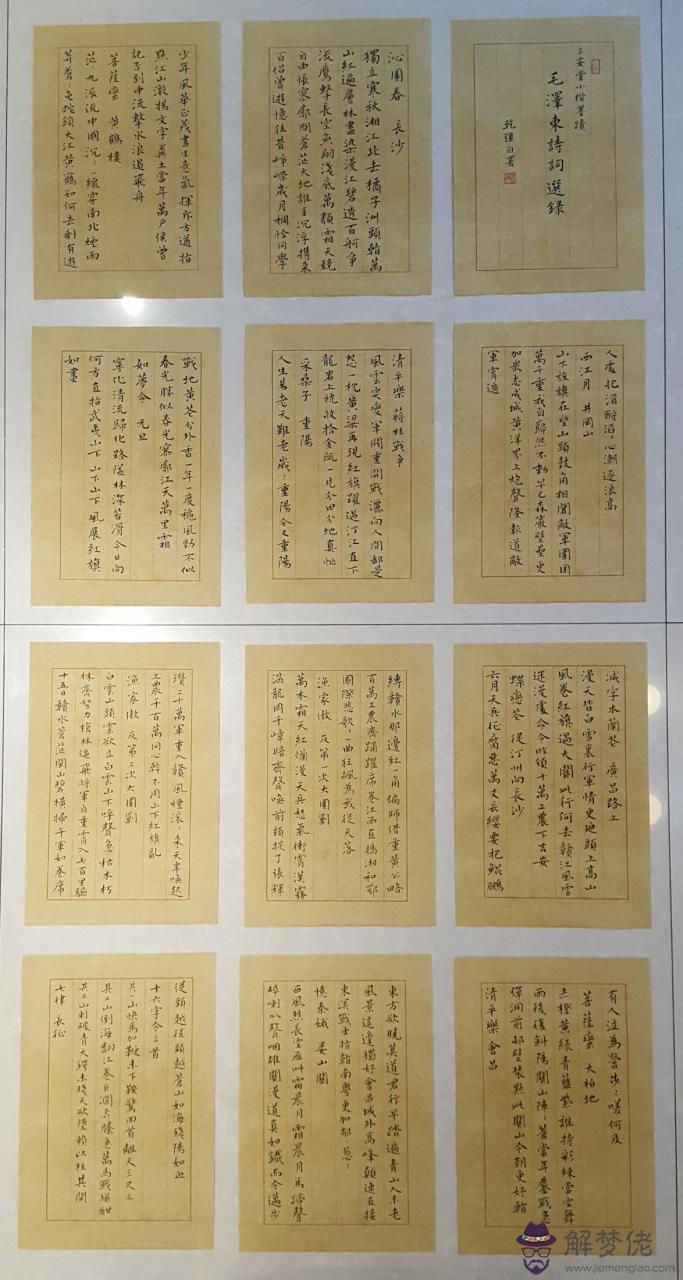 三安堂小楷墨蹟
毛澤東詩詞選錄
乾疆自署
沁園春 長沙
獨立寒秋湘江北去橘子洲頭看萬
山紅遍層林盡染漫江碧透百舸爭
流鷹擊長空魚翔淺底萬類霜天競
自由悵寥廓問蒼茫大地誰主沉浮攜來
百侶曾遊憶往昔崢嶸歲月稠恰同學
少年風華正茂書生意氣揮斥方遒指
點江山激揚文字糞土當年萬戶侯曾
記否到中流擊水浪遏飛舟
菩薩蠻 黃鶴樓
茫:九派流中國沉:一線穿南北煙雨
莽蒼:龜蛇鎖大江黃鶴知何去剩有遊
人處把酒酹滔:心潮逐浪高
西江月 井岡山
山下旌旗在望山頭鼓角相聞敵軍圍困
萬千重我自歸然不動早已森嚴壁壘更
加眾志成城黃洋界上炮聲隆報道敵
軍宵遁
清平樂 蔣桂戰爭
風雲突變軍閥重開戰灑向人間都是
怨一枕黃粱再現紅旗躍過汀江直下
龍岩上杭收拾金甌一片分田分地真忙
采桑子 重陽
人生易老天難老歲:重陽今又重陽
戰地黃花分外香一年一度秋風勁不似
春光勝似春光寥廓江天萬里霜
如夢令 元旦
寧化清流歸化路隘林深苔滑今日向
何方直指武夷山下山下山下風展紅旗
如畫
減字木蘭花 廣昌路上
漫天皆白雪裏行軍情更迫頭上高山
風卷紅旗過大關此行何去贛江風雪
迷漫處命令昨頒十萬工農下吉安
蝶戀花 從汀州向長沙
六月天兵征腐惡萬丈長纓要把鯤鵬
縛贛水那邊紅一角偏師借重黃公略
百萬工農齊踴躍席卷江西直搗湘和鄂
國際悲歌一曲狂飆為我從天落
漁家傲 反第一次大圍剿
萬木霜天紅爛漫天兵怒氣衝霄漢霧
滿龍岡千嶂暗齊聲喚前頭捉了張輝
瓚二十萬軍重入贛風煙滾:來天半喚起
工農千百萬同心幹不周山下紅旗亂
漁家傲 反第二次大圍剿
白雲山頭雲欲立白雲山下呼聲急枯木朽
林齊努力槍林逼飛將軍自重霄入七百里驅
十五日贛水蒼茫閩山碧橫掃千軍如卷席
有人泣為營步:嗟何及
菩薩蠻 大柏地
赤橙黃綠青藍紫誰持彩練當空舞
雨後復斜陽關山陣:蒼當年鏖戰急
彈洞前村壁裝點此關山今朝更好看
清平樂 會昌
東方欲曉莫道君行早踏遍青山人未老
風景這邊獨好會昌城外高峰顛連直接
東溟戰士指看南粵更加郁:蔥:
憶秦娥 婁山關
西風烈長空雁叫霜晨月霜晨月馬蹄聲
碎喇叭聲咽雄關漫道真如鐵而今邁步
從頭越從頭越蒼山如海殘陽如血
十六字令三首
其一山快馬加鞭未下鞍驚回首離天三尺三
其二山倒海翻江卷巨瀾奔騰急萬馬戰猶酣
其三山刺破青天鍔未殘天欲墮賴以柱其間
七律 長征
解梦佬
www.jiemenglao.com